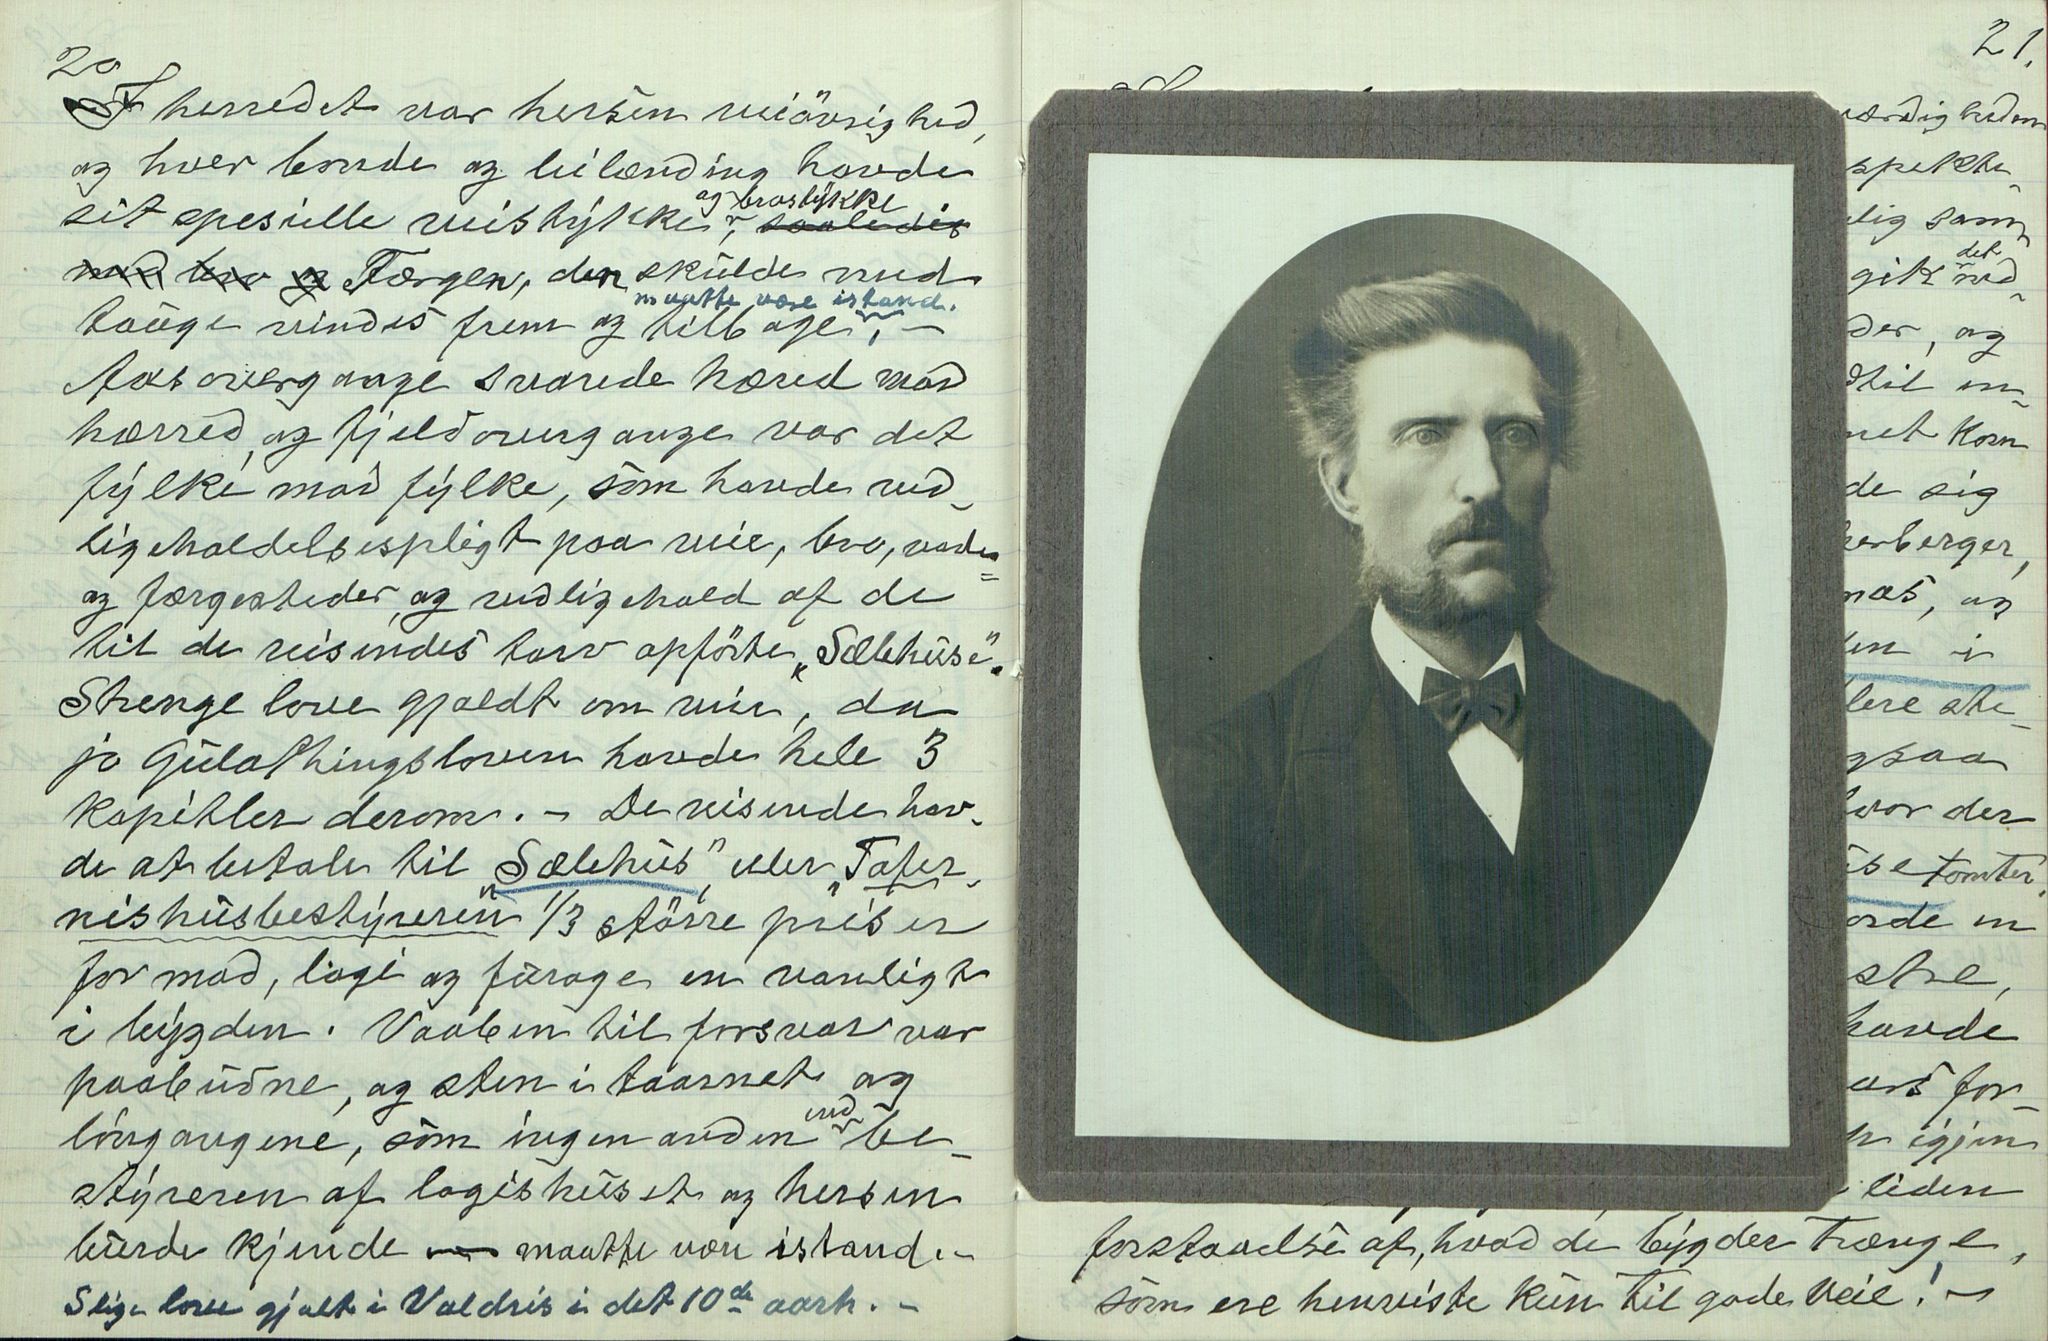 20
I herredet var hersen veiövrighed,
og hver bonde og leilænding havde
sit spesielle veistykke, og brostykke saaledes
med bro og Færgen, den skulde med
touge vindes frem og tilbage, maatte være istand. –
Aasovergange svarede hæred mod
hærred, og fjeldovergange var det
fylke mod fylke, som havde ved-
ligeholdelsespligt paa veie, bro, vade-
og færgesteder, og vedligehold af de
til de reisendes tarv opförte „Sælehuse".
Strenge love gjældt om veie, da
jo Gulathingsloven havde hele 3
kapitler derom. – De reisende hav-
de at betale til „Sælehus", eller „Tafer-
nishusbestyreren" 1/3 större priser
for mad, logi og furage en vanligt
i bygden. Vaaben til forsvar var
paabudne, og sten i taarnet og
löngangene, som ingen anden end be-
styreren af logishuset og hersen
burde kjende – maatte være istand. –
Slige love gjalt i Valdris i det 10de aarh. –
21.
værdigheden
spekte-
lig sam-
gik det ved-
der, og
dtil en-
net Korn
de sig
herberger,
næs, og
den i
lere ste-
gsaa
hvor der
use tomter
orde en
stre,
havde
ars for-
igjen
liden
forstaaelse af, hvad de bygder trænge,
som ere henviste kun til gode Veie! –